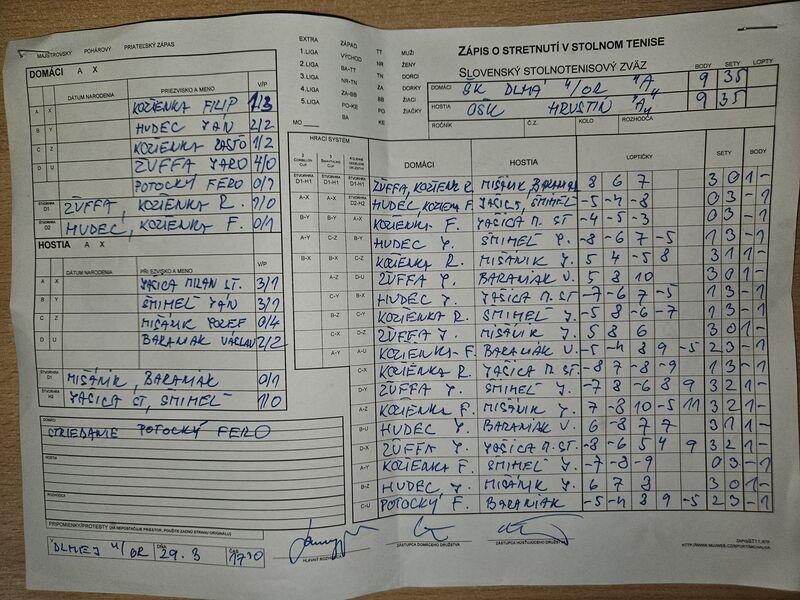 MAJSTROVSKÝ POHÁROVÝ PRIATEĽSKÝ ZÁPAS
EXTRA ZÁPAD TT MUŽI
1.LIGA VÝCHOD NR ŽENY
2.LIGA BA-TT BA DORCI
3.LIGA NR-TN TN DORKY
4.LIGA ZA-BB ZA ŽIACI
5.LIGA PO-KE BB ŽIAČKY
MO
ZÁPIS O STRETNUTÍ V STOLNOM TENISE
SLOVENSKÝ STOLNOTENISOVÝ ZVÄZ
BODY SETY LOPTY
DOMÁCI ŠK DLHÁ N/OR "A" 9 35
HOSTIA OŠK HRUŠTÍN "A" 9 35
ROČNÍK Č.Z. KOLO ROZHODCA
DOMÁCI A X
DÁTUM NARODENIA PRIEZVISKO A MENO V/P
A X KOZIENKA FILIP 1/3
B Y HUDEC JÁN 2/2
C Z KOZIENKA RASŤO 1/2
D U ŽUFFA JARO 4/0
POTOCKÝ FERO 0/1
ŠTVORHRA D1 ŽUFFA, KOZIENKA R. 1/0
ŠTVORHRA D2 HUDEC, KOZIENKA F. 0/1
HOSTIA A X
DÁTUM NARODENIA PRIEZVISKO A MENO V/P
A X JAŠICA MILAN ST. 3/1
B Y ŠMIHEL JÁN 3/1
C Z MIŠÁNIK JOZEF 0/4
D U BARANIAK VÁCLAV 2/2
ŠTVORHRA MIŠÁNIK, BARANIAK 0/1
ŠTVORHRA H2 JAŠICA ST, ŠMIHEL 1/0
DOMÁCI
STRIEDANIE POTOCKÝ FERO
HOSTIA
ROZHODCA
PRIPOMIENKY/PROTESTY (AK NEPOSTAČUJE PRIESTOR, POUŽITE ZADNÚ STRANU ORIGINÁLU)
V DLHEJ N/OR DŇA 29.3 ČAS 17:30
HRACÍ SYSTÉM DOMÁCI HOSTIA LOPTIČKY SETY BODY
ŠTVORHRA D1-H1 ŽUFFA, KOZIENKA R. MIŠÁNIK, BARANIAK 8 6 7 3 0 1 -
HUDEC, KOZIENKA F. JAŠICA, ŠMIHEL -5 -4 -8 0 3 - 1
KOZIENKA F. JAŠICA M. ST -4 -5 -3 0 3 - 1
HUDEC J. ŠMIHEL J. -8 -6 7 -5 1 3 - 1
KOZIENKA R. MIŠÁNIK J. 5 4 -5 8 3 1 1 -
ŽUFFA J. BARANIAK V. 5 8 10 3 0 1 -
HUDEC J. JAŠICA M. ST -7 -6 7 -5 1 3 - 1
KOZIENKA R. ŠMIHEL J. -5 5 -6 -7 1 3 - 1
ŽUFFA J. MIŠÁNIK J. 5 8 6 3 0 1 -
KOZIENKA F. BARANIAK V. -5 -4 8 9 -5 2 3 - 1
KOZIENKA R. JAŠICA M ST. -8 7 -8 -9 1 3 - 1
ŽUFFA J. ŠMIHEL J. -7 8 -6 8 9 3 2 1 -
KOZIENKA F. MIŠÁNIK J. 7 -8 10 -5 11 3 2 1 -
HUDEC J. BARANIAK V. 6 -8 7 7 3 1 1 -
ŽUFFA J. JAŠICA M. ST. -8 -6 5 4 9 3 2 1 -
KOZIENKA F. ŠMIHEL J. -7 -8 -9 0 3 - 1
HUDEC J. MIŠÁNIK J. 6 7 8 3 0 1 -
POTOCKÝ F. BARANIAK -5 -4 8 9 -5 2 3 - 1
HLAVNÝ ROZHODCA
ZÁSTUPCA DOMÁCEHO DRUŽSTVA
ZÁSTUPCA HOSŤUJÚCEHO DRUŽSTVA